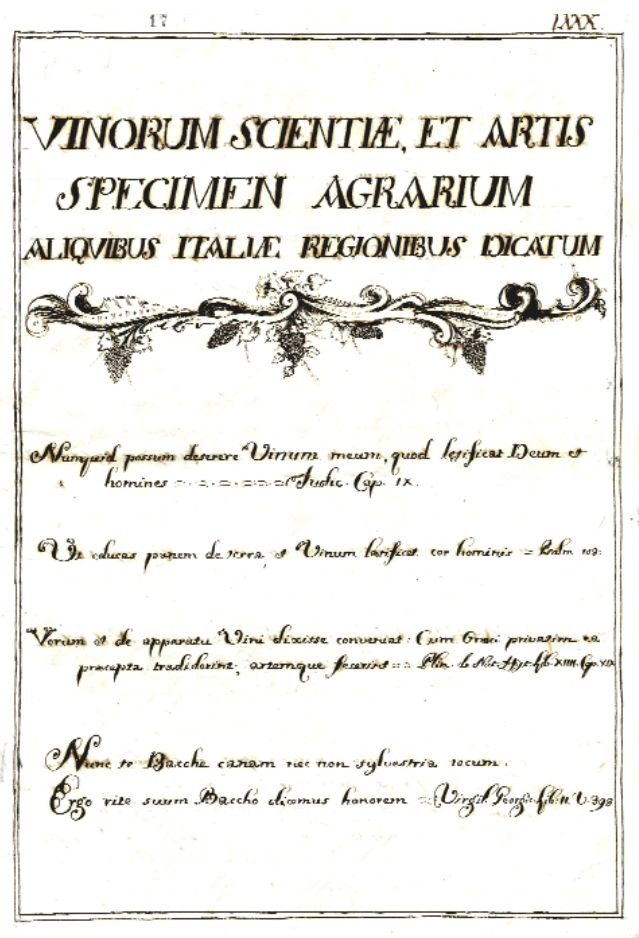 17
LXXX.
VINORUM SCIENTIÆ, ET ARTIS
SPECIMEN AGRARIUM
ALIQVIBUS ITALIÆ REGIONIBUS DICATUM
Numquid possum deserere Vinum meum, quod lętificat Deum et
homines Judic. Cap. IX.
Ut educas panem de terra, et Vinum lætificet cor hominis = Psalm 103:
Verum et de apparatu Vini dixisse conveniat: Cum Græci privatim ea
præcepta tradiderint, artemque fecerint = Plin. de Nat. Hist. Lib. XIIII. Cap. XIX
Nunc te Bacche canam nec non sylvestria tecum.
Ergo rite suum Baccho dicemus honorem = Virgil. Georgic. Lib. II. V. 393